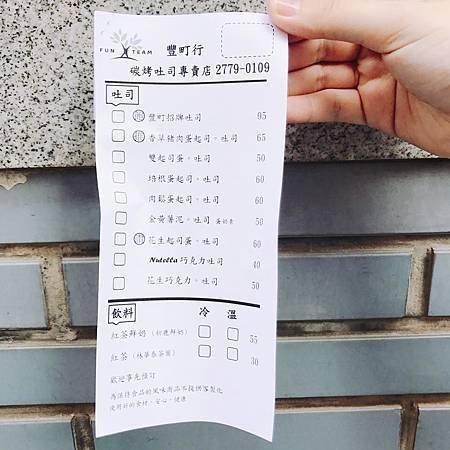 FUN TEAM 豐町行
碳烤吐司專賣店 2779-0109
吐司
豐町招牌吐司 95
香草豬肉蛋起司。吐司 65
雙起司蛋。吐司 50
培根蛋起司。吐司 60
肉鬆蛋起司。吐司 60
金黃薯泥。吐司 蛋奶素 50
花生起司蛋。吐司 60
Nutella 巧克力吐司 40
花生巧克力。吐司 50
飲料 冷 溫
紅茶鮮奶 (初鹿鮮奶) 55
紅茶 (林華泰茶園) 30
歡迎事先預訂
為保持食品的風味商品不提供客製化
使用好的食材。安心。健康